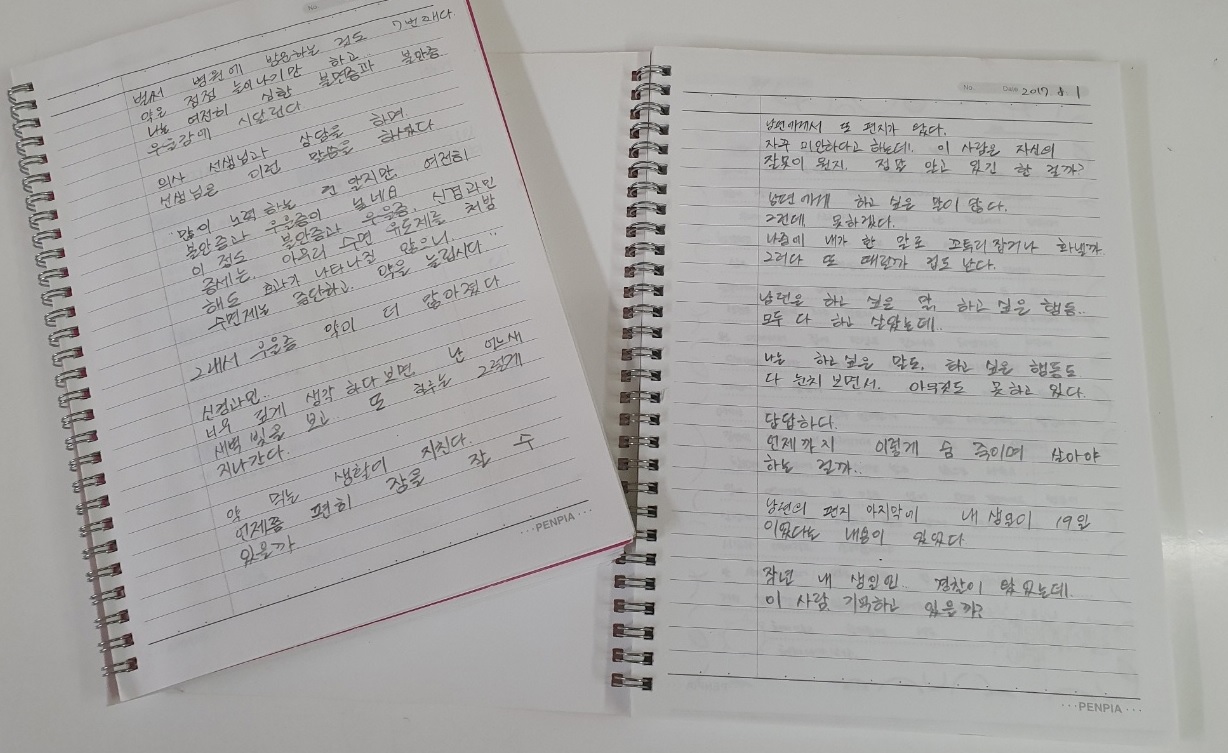 No.
벌써 병원에 방문하는 것도 7번째다.
약은 점점 늘어나기만 하고
나는 여전히 심한 불면증과 불안증
우울감에 시달린다
의사 선생님과 상담을 하며
선생님은 이런 말씀을 하셨다
"많이 노력하는 건 알지만 여전히
불안증과 우울증이 보네요
이 정도 불안증과 우울증, 신경과민
증세는, 아무리 수면 유도제를 처방
해도 효과가 나타나질 않으니
수면제는 중단하고, 약을 늘립시다"
그래서 우울증 약이 더 많아졌다
신경과민..
너무 깊게 생각하다보면 난 어느새
새벽 빛을 보고 또 하루는 그렇게
지나간다.
약 먹는 생활이 지친다.
언제쯤 편히 잠을 잘 수
있을까
···PENPIA···
No. Date 2017. 8. 1
남편에게서 또 편지가 왔다.
자꾸 미안하다고 하는데. 이 사람은 자신의
잘못이 뭔지. 정말 알고 있긴 한 걸까?
남편에게 하고 싶은 말이 많다.
그런데 못하겠다.
나중에 내가 한 말로 꼬투리잡거나 화낼까
그러다 또 때릴까 겁도 난다.
남편은 하고 싶은 말, 하고 싶은 행동..
모두 다 하고 살았는데..
나는 하고싶은 말도, 하고 싶은 행동도
다 눈치보면서. 아무것도 못하고 있다.
답답하다.
언제까지 이렇게 숨 죽이며 살아야
하는 걸까..
남편의 편지 마지막에 내 생일이 19일
이었다는 내용이 있었다
작년 내 생일엔 경찰이 왔었는데.
이 사람 기억하고 있을까?
···PENPIA···